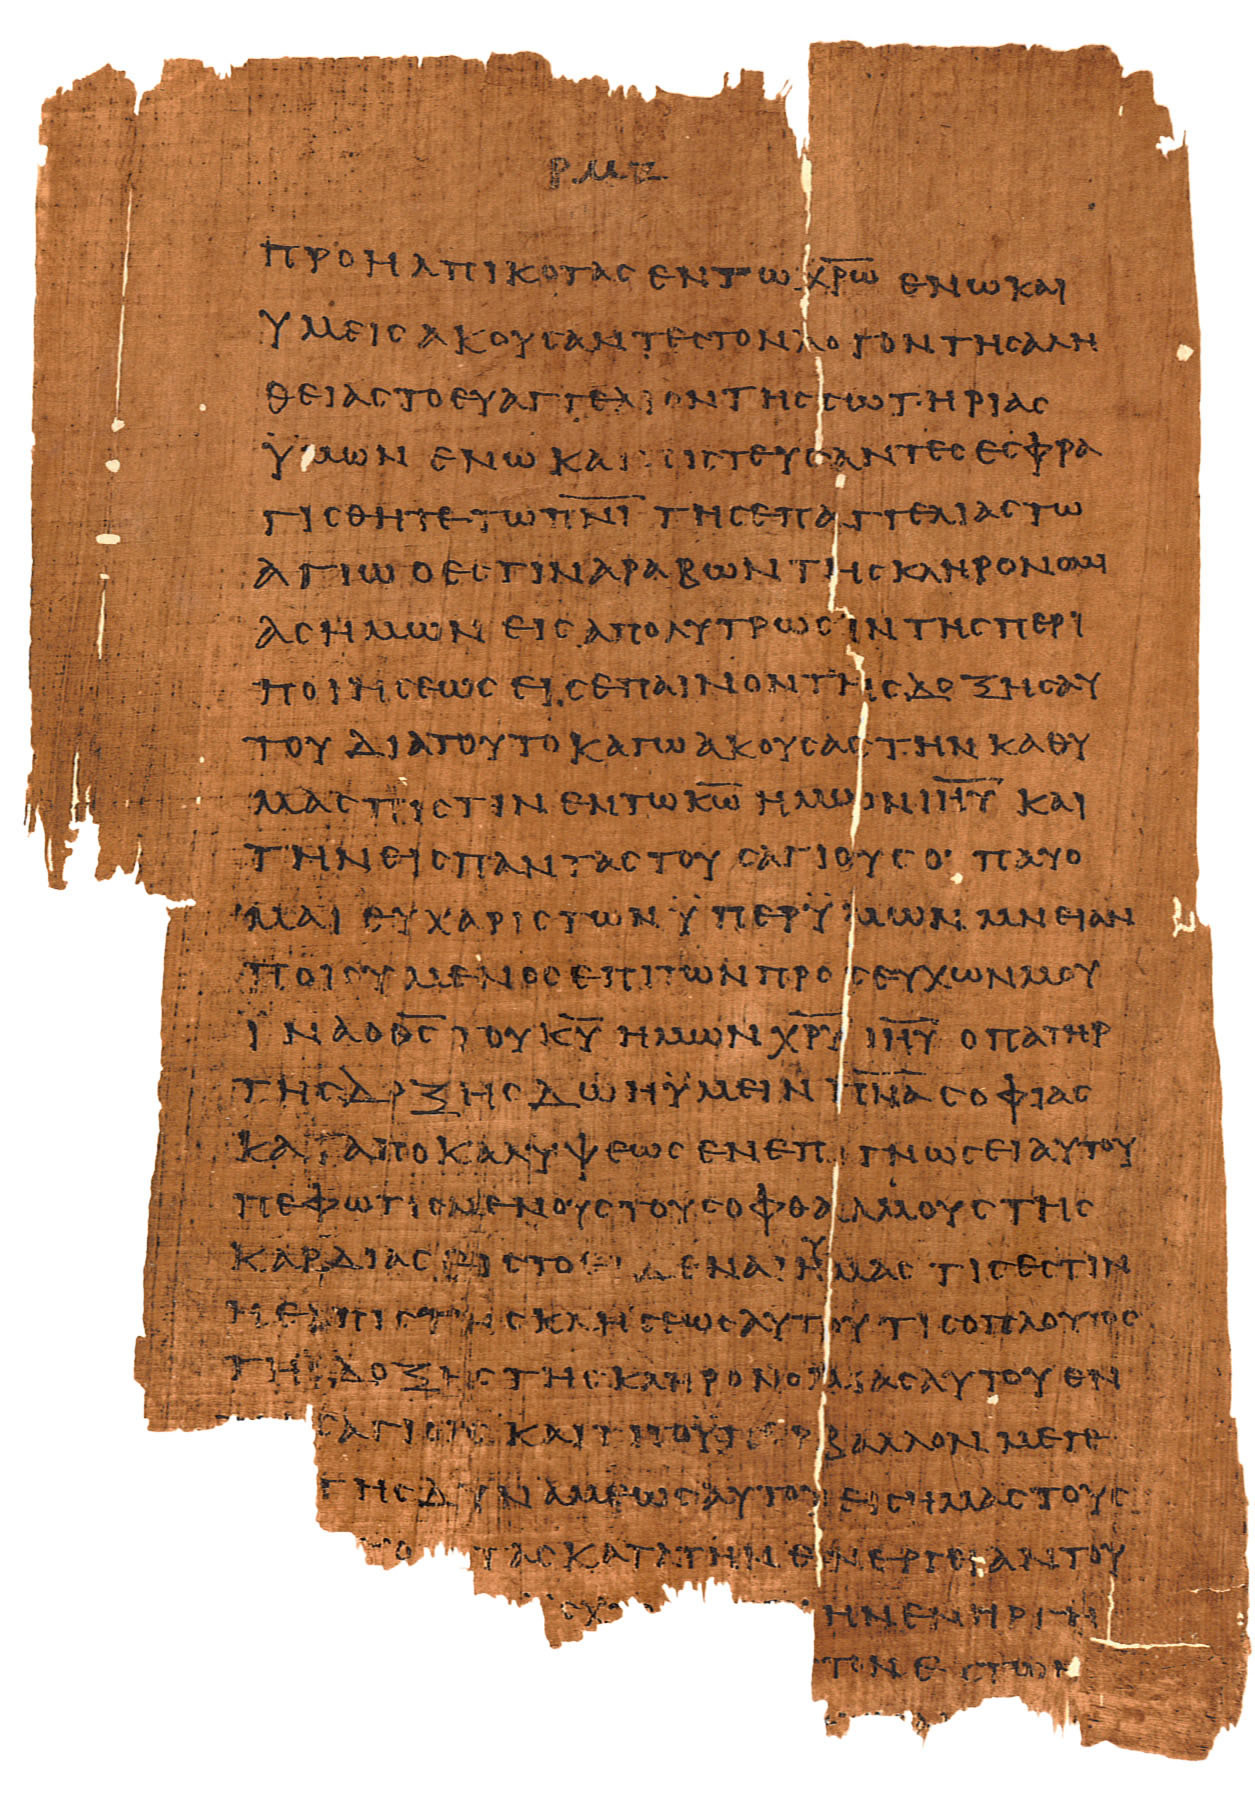 ΡΜΖ
ΠΡΟΗΛΠΙΚΟΤΑΣ ΕΝ ΤΩ ΧΡΩ ΕΝ Ω ΚΑΙ
ΥΜΕΙΣ ΑΚΟΥΣΑΝΤΕΣ ΤΟΝ ΛΟΓΟΝ ΤΗΣ ΑΛΗ
ΘΕΙΑΣ ΤΟ ΕΥΑΓΓΕΛΙΟΝ ΤΗΣ ΣΩΤΗΡΙΑΣ
ΫΜΩΝ ΕΝ Ω ΚΑΙ ΠΙΣΤΕΥΣΑΝΤΕΣ ΕΣΦΡΑ
ΓΙΣΘΗΤΕ ΤΩ ΠΝΙ ΤΗΣ ΕΠΑΓΓΕΛΙΑΣ ΤΩ
ΑΓΙΩ Ο ΕΣΤΙΝ ΑΡΑΒΩΝ ΤΗΣ ΚΛΗΡΟΝΟΜΙ
ΑΣ ΗΜΩΝ ΕΙΣ ΑΠΟΛΥΤΡΩΣΙΝ ΤΗΣ ΠΕΡΙ
ΠΟΙΗΣΕΩΣ ΕΙΣ ΕΠΑΙΝΟΝ ΤΗΣ ΔΟΞΗΣ ΑΥ
ΤΟΥ ΔΙΑ ΤΟΥΤΟ ΚΑΓΩ ΑΚΟΥΣΑΣ ΤΗΝ ΚΑΘ Υ
ΜΑΣ ΠΙΣΤΙΝ ΕΝ ΤΩ ΚΩ ΗΜΩΝ ΙΗΥ ΚΑΙ
ΤΗΝ ΕΙΣ ΠΑΝΤΑΣ ΤΟΥΣ ΑΓΙΟΥΣ ΟΥ ΠΑΥΟ
ΜΑΙ ΕΥΧΑΡΙΣΤΩΝ ΫΠΕΡ ΫΜΩΝ ΜΝΕΙΑΝ
ΠΟΙΟΥΜΕΝΟΣ ΕΠΙ ΤΩΝ ΠΡΟΣΕΥΧΩΝ ΜΟΥ
ΪΝΑ Ο ΘΣ ΤΟΥ ΚΥ ΗΜΩΝ ΧΡΥ ΙΗΥ Ο ΠΑΤΗΡ
ΤΗΣ ΔΟΞΗΣ ΔΩΗ ΫΜΕΙΝ ΠΝΑ ΣΟΦΙΑΣ
ΚΑΙ ΑΠΟΚΑΛΥΨΕΩΣ ΕΝ ΕΠΙΓΝΩΣΕΙ ΑΥΤΟΥ
ΠΕΦΩΤΙΣΜΕΝΟΥΣ ΤΟΥΣ ΟΦΘΑΛΜΟΥΣ ΤΗΣ
ΚΑΡΔΙΑΣ ΕΙΣ ΤΟ ΕΙΔΕΝΑΙ ΥΜΑΣ ΤΙΣ ΕΣΤΙΝ
Η ΕΛΠΙΣ ΤΗΣ ΚΛΗΣΕΩΣ ΑΥΤΟΥ ΤΙΣ Ο ΠΛΟΥΤΟΣ
ΤΗΣ ΔΟΞΗΣ ΤΗΣ ΚΛΗΡΟΝΟΜΙΑΣ ΑΥΤΟΥ ΕΝ
ΑΓΙΟΙΣ ΚΑΙ ΤΙ ΤΟ ΫΠΕΡΒΑΛΛΟΝ ΜΕΓΕ
ΤΗΣ ΔΥΝΑΜΕΩΣ ΑΥΤΟΥ ΕΙΣ ΗΜΑΣ ΤΟΥΣ
ΤΑΣ ΚΑΤΑ ΤΗΝ ΕΝΕΡΓΕΙΑΝ ΤΟΥ
ΗΝ ΕΝΗΡΓΗ